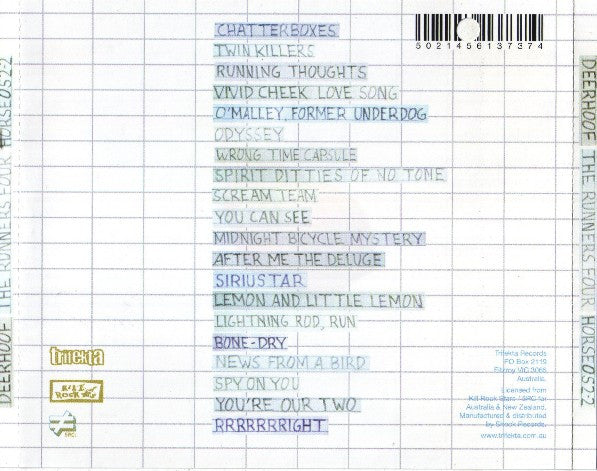 CHATTERBOXES
TWIN KILLERS
RUNNING THOUGHTS
VIVID CHEEK LOVE SONG
O'MALLEY, FORMER UNDERDOG
ODYSSEY
WRONG TIME CAPSULE
SPIRIT DITTIES OF NO TONE
SCREAM TEAM
YOU CAN SEE
MIDNIGHT BICYCLE MYSTERY
AFTER ME THE DELUGE
SIRIUSTAR
LEMON AND LITTLE LEMON
LIGHTNING ROD, RUN
BONE-DRY
NEWS FROM A BIRD
SPY ON YOU
YOU'RE OUR TWO
RRRRRRRIGHT
5021456137374
DEERHOOF THE RUNNERS FOUR HORSE0522
DEERHOOF THE RUNNERS FOUR HORSE0522
trifekta
KILL
ROCK
SPC
Trifekta Records
PO Box 2119
Fitzroy VIC 3065
Australia.
Licensed from
Kill Rock Stars / SPC for
Australia & New Zealand.
Manufactured & distributed
by Shock Records.
www.trifekta.com.au